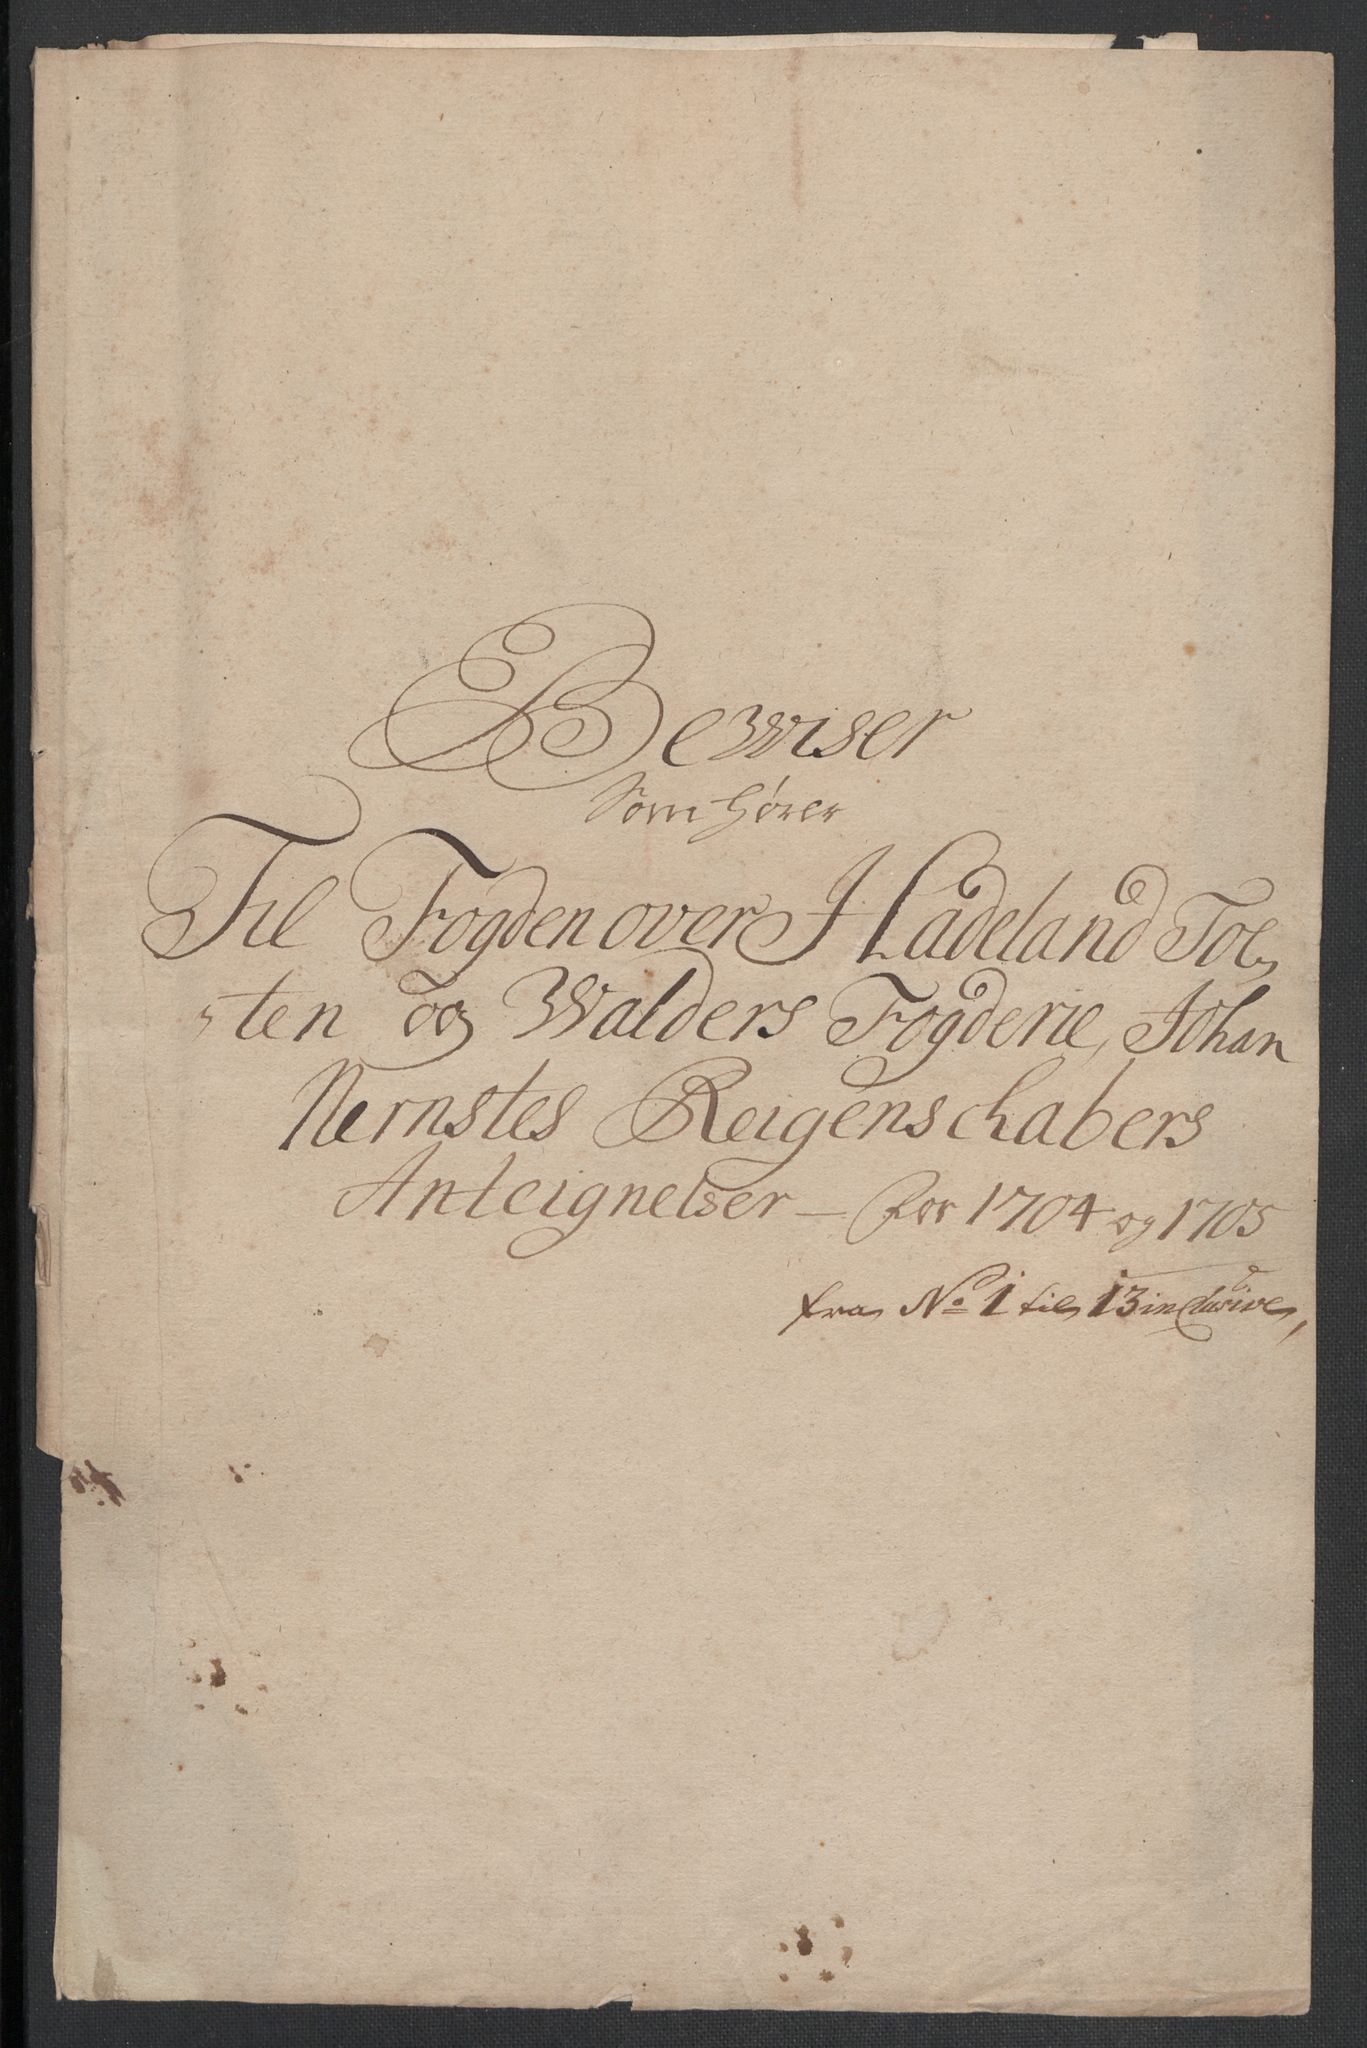 Bewiser
Som hører
Til Fogden over Hadeland Tol-
sten og Walders Fogderie, Johan
Nernstes Reigenschabers
Anteignelser – for 1704 og 1705
fra No 1 til 13 inclusive,